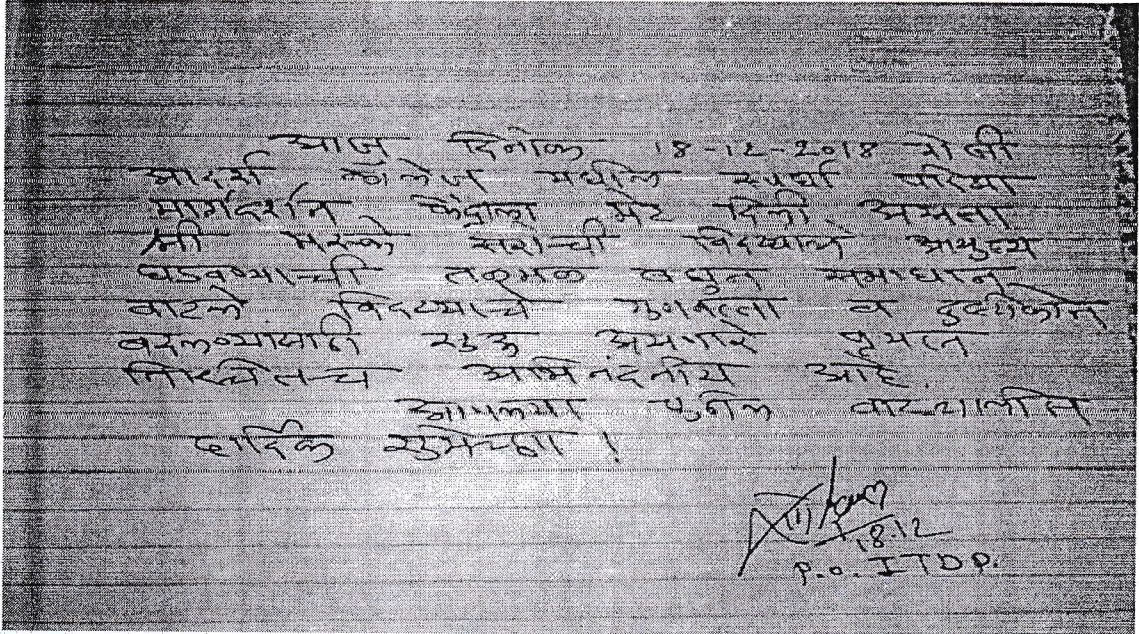 आज दिनांक 18-12-2018 रोजी
आदर्श कॉलेज मधील स्पर्धा परिक्षा
मार्गदर्शन केंद्राला भेट दिली. असता
श्री सरांची विदयार्थ्यांचे आयुष्य
घडवण्याची तळमळ बघुन समाधान
वाटले विदयार्थ्यांचे गुणवत्ता व दृष्टीकोन
बदलण्यासाठी सुरू असणारे प्रयत्न
निश्चितच अभिनंदनीय आहे.
आपल्या पुढील वाटचालीस
हार्दिक शुभेच्छा !
18.12
P.O. ITDP.